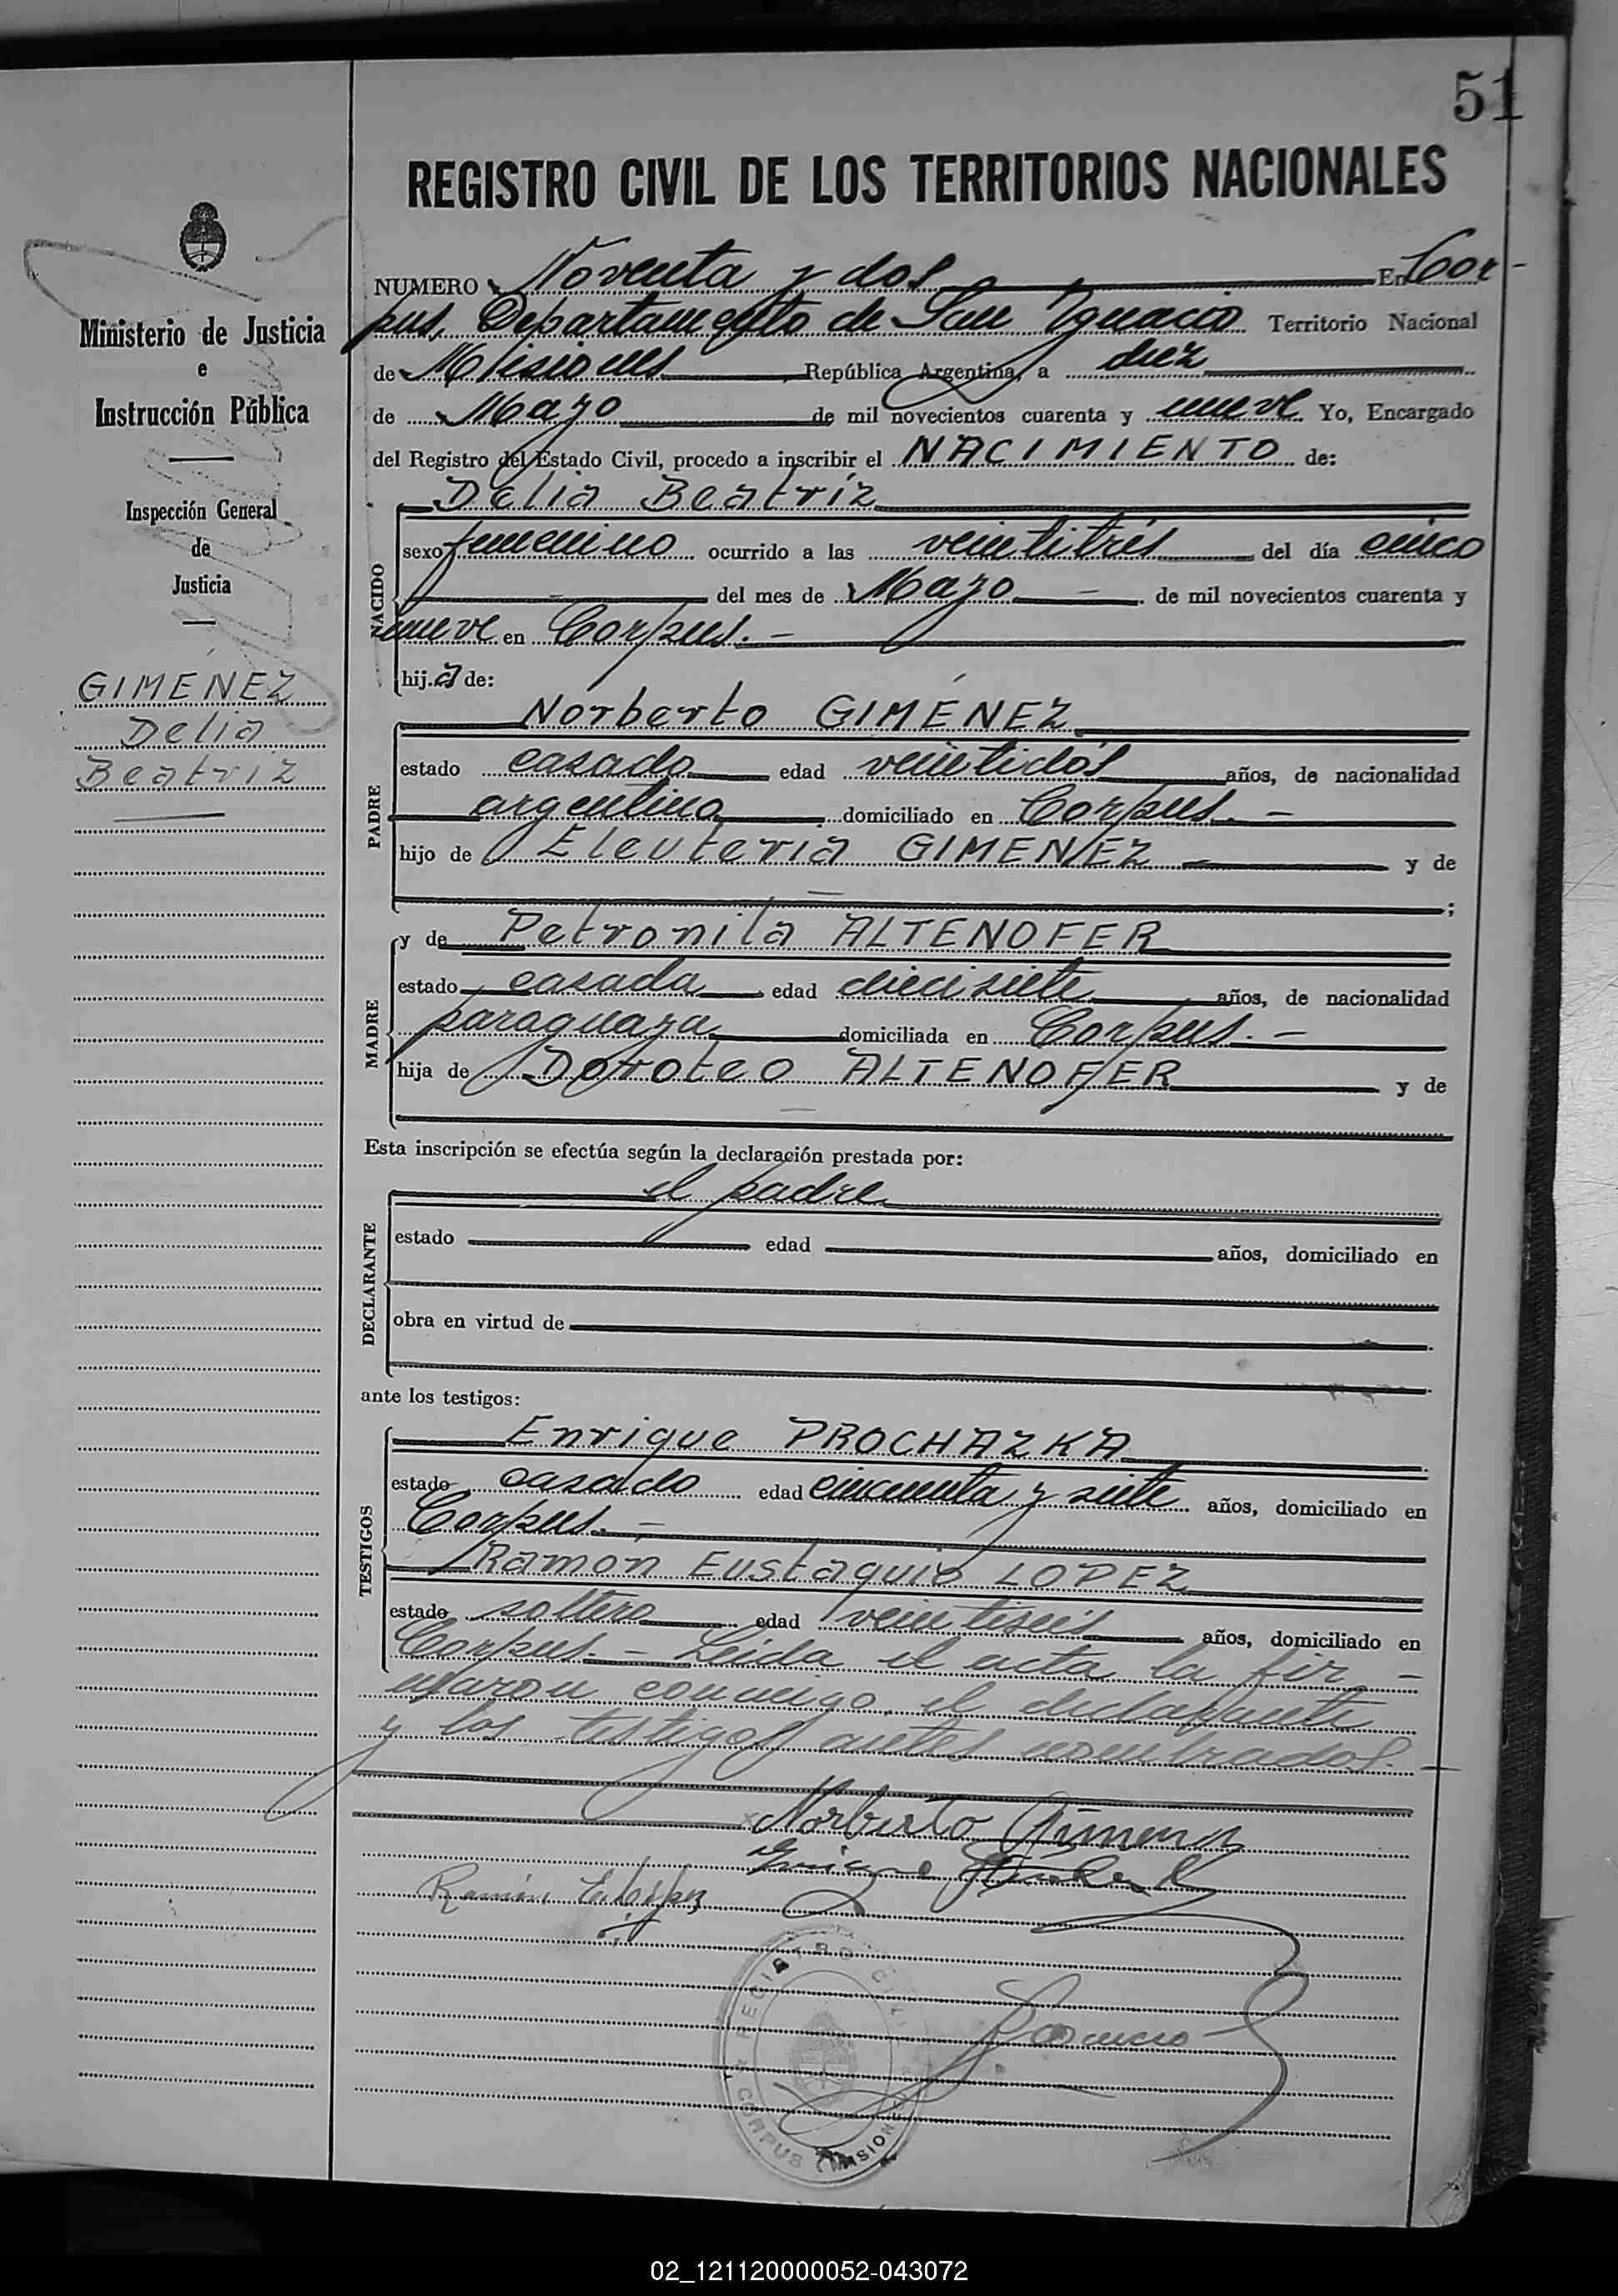 51
REGISTRO CIVIL DE LOS TERRITORIOS NACIONALES
Ministerio de Justicia
e
Instrucción Pública
Inspección General
de
Justicia
GIMENEZ
Delia
Beatriz
NUMERO Noventa y dos En Cor-
pus, Departamento de San Ignacio Territorio Nacional
de Misiones República Argentina, a diez
de Mayo de mil novecientos cuarenta y nueve Yo, Encargado
del Registro del Estado Civil, procedo a inscribir el NACIMIENTO de:
NACIDO
Delia Beatríz
sexo femenino ocurrido a las veintitrés del día cinco
del mes de Mayo de mil novecientos cuarenta y
nueve en Corpus.-
hija de:
PADRE
Norberto GIMENEZ
estado casado edad veintidós años, de nacionalidad
argentina domiciliado en Corpus.-
hijo de Eleuteria GIMENEZ y de
;
MADRE
y de Petronila ALTENOFER
estado casada edad diecisiete años, de nacionalidad
paraguaya domiciliada en Corpus.-
hija de Doroteo ALTENOFER y de
Esta inscripción se efectúa según la declaración prestada por:
DECLARANTE
el padre
estado edad años, domiciliado en
obra en virtud de
ante los testigos:
TESTIGOS
Enrique PROCHAZKA
estado casado edad cincuenta y siete años, domiciliado en
Corpus.-
Ramón Eustaquio LOPEZ
estado soltero edad veintiseis años, domiciliado en
Corpus.- Leida el acta la fir-
maron conmigo, el declarante
y los testigos antes nombrados.-
Norberto Gimenez
Enrique
Ramón E. López
REGISTRO CIVIL
CORPUS (MISIONES)
02_121120000052-043072